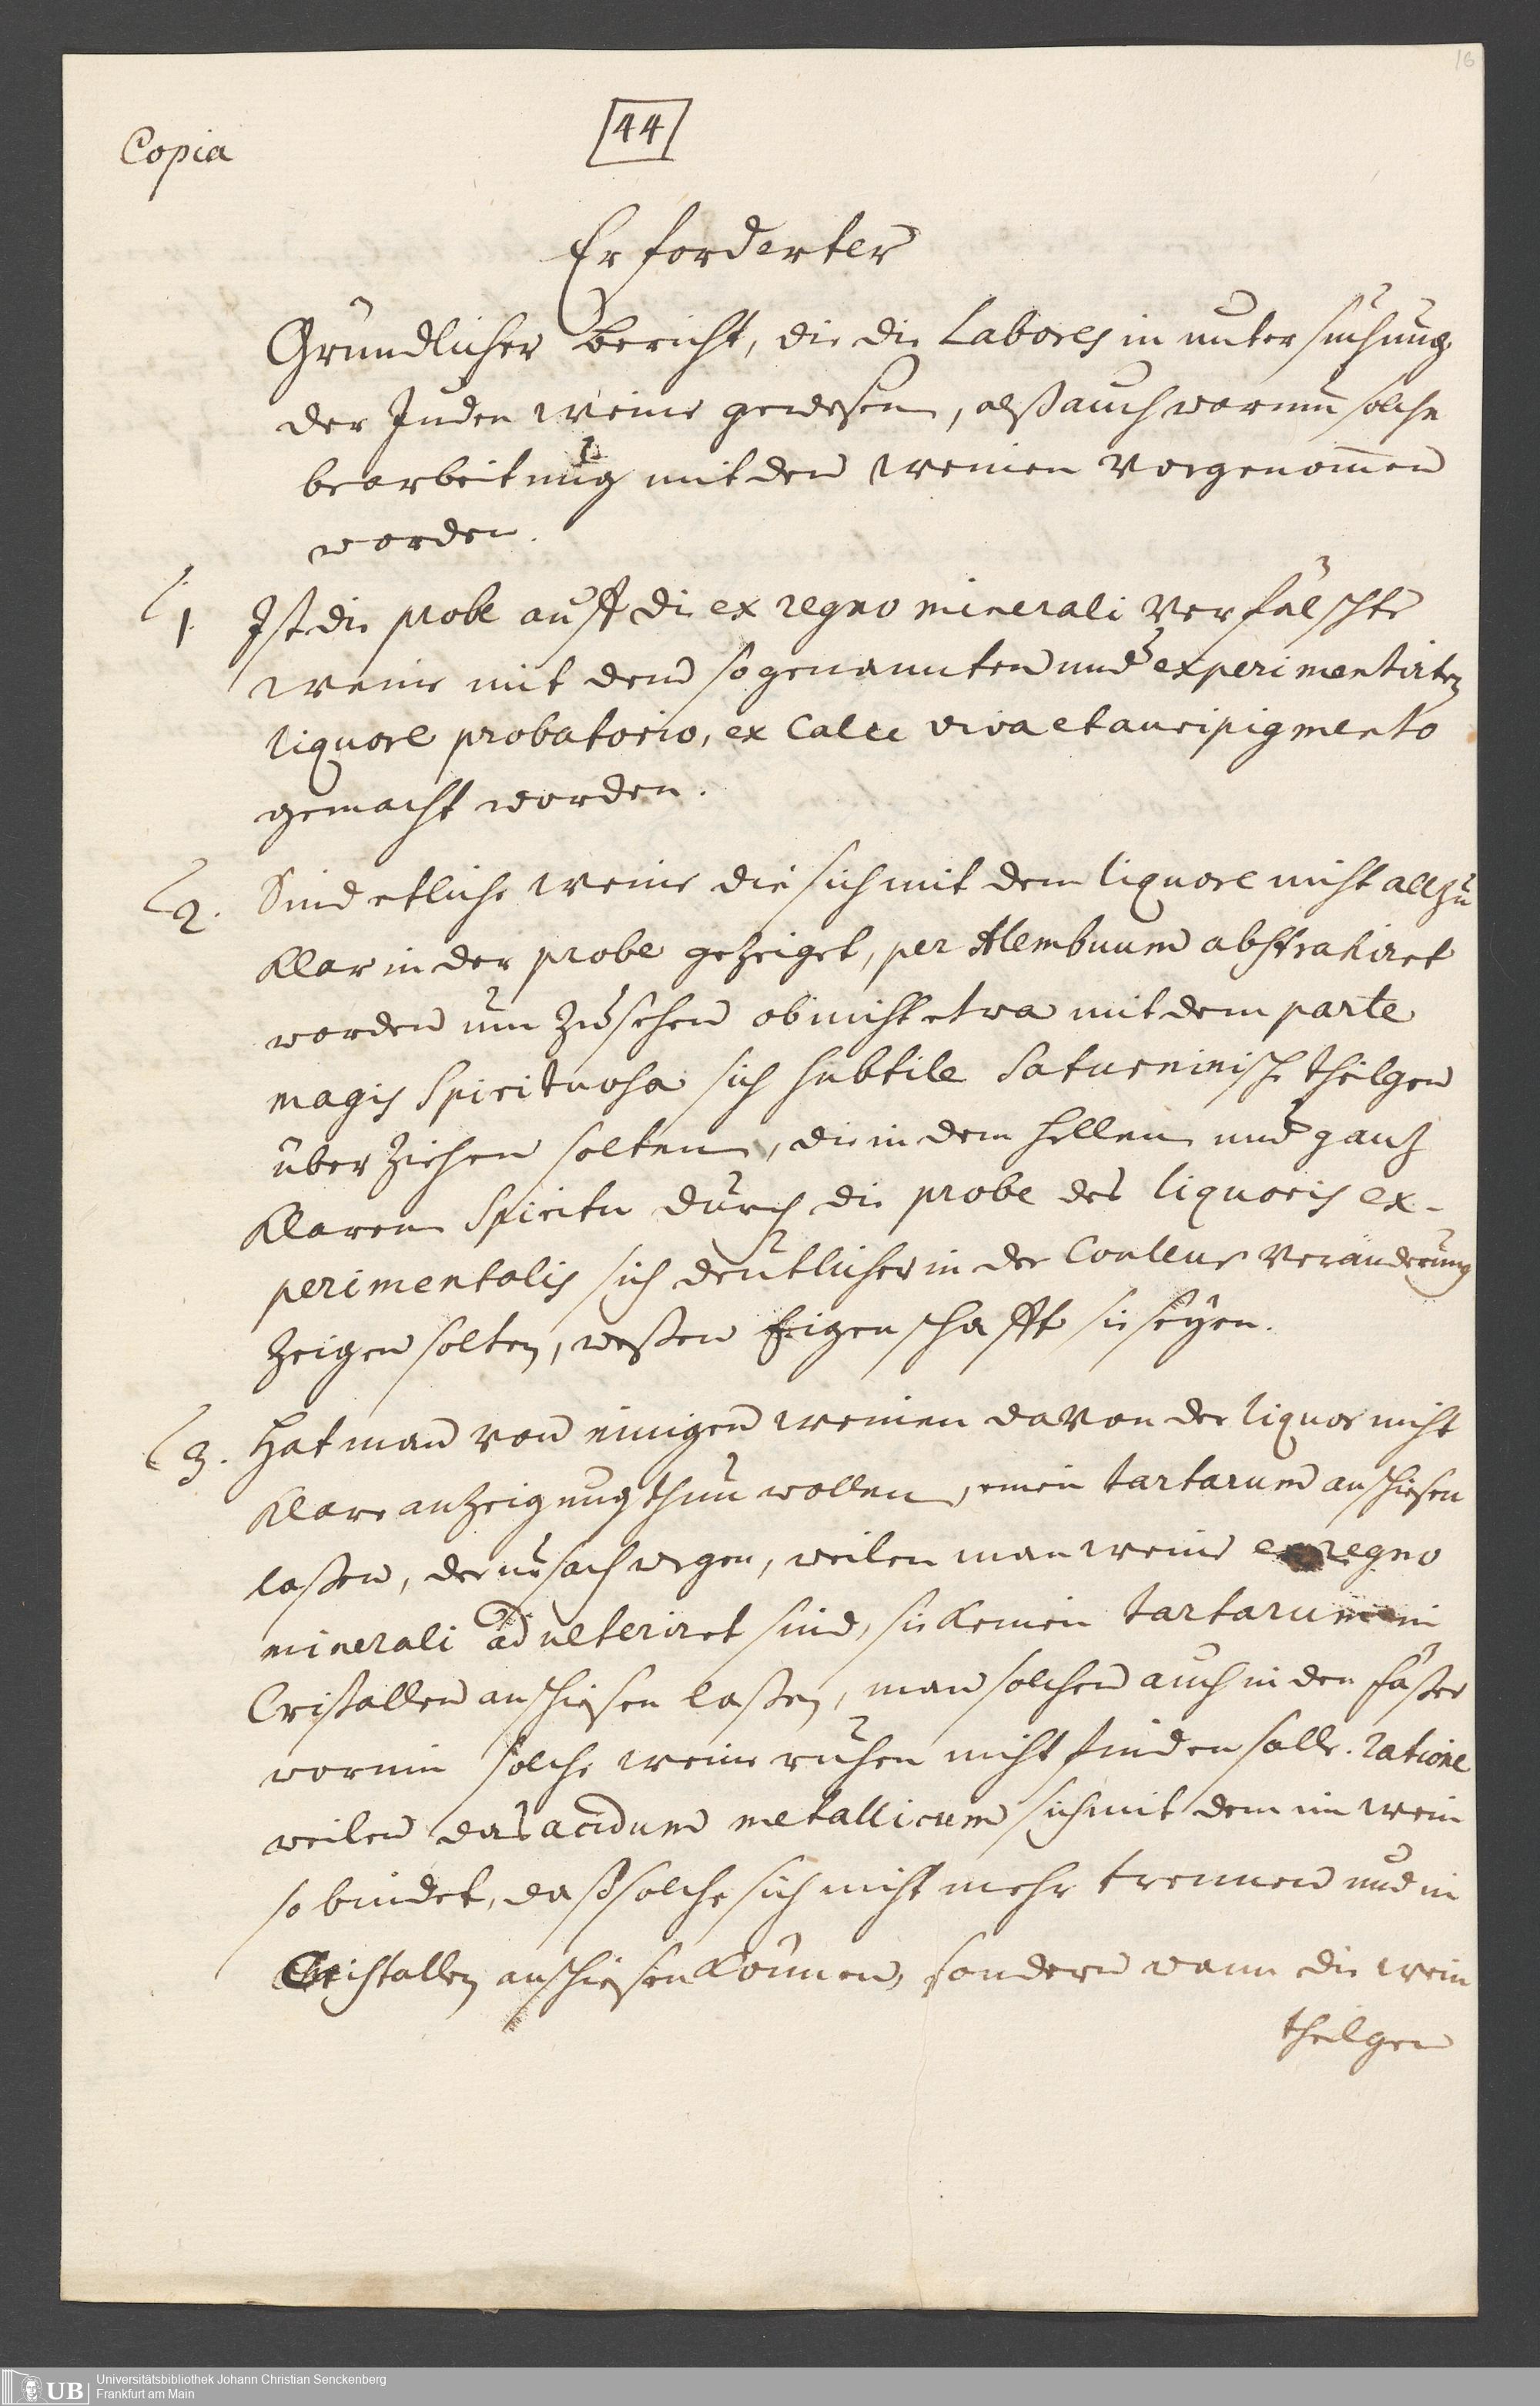 16
44
Copia
Erforderter
Gründlicher bericht, die die Labores in untersuchung
der Juden weine gewesen, alß auch warum solche
bearbeitung mit den weinen vorgenom̄en
worden.
1. Ist die probe auff die ex regno minerali verfälschte
weine mit dem so genannten und experimentirten
liquore probatorio, ex Calce viva et auripigmento
gemacht worden.
2. Sind etliche weine die sich mit dem liquore nicht allzu
klar in der probe gezeiget, per Alembicum abstrahiret
worden um zu sehen ob nicht etwa mit dem parte
magis Spirituosa sich subtile Saturninische theilgen
über ziehen solten, die in dem hellen und gantz
klaren Spiritu durch die probe des liquoris ex-
perimentalis sich deutlicher in der Couleur veränderung
zeigen solten, weßen Eigenschafft sie seyen.
3. Hat man von einigen weinen davon der liquor nicht
klare anzeigung thun wollen, einen tartarum anschiesen
laßen, der ursach wegen, weilen man weine ex regno
minerali adulteriret sind, sie keinen tartarum in
Cristallen anschiesen laßen, man solchen auch in den faßer
worinn solche weine ruhen nicht finden solle. ratione
weilen das acidum metallicum sich mit dem im wein
so bindet, daß solche sich nicht mehr trennen und in
Cristallen anschiesen können, sondern wann die wein
theilgen
UB
Universitätsbibliothek Johann Christian Senckenberg
Frankfurt am Main